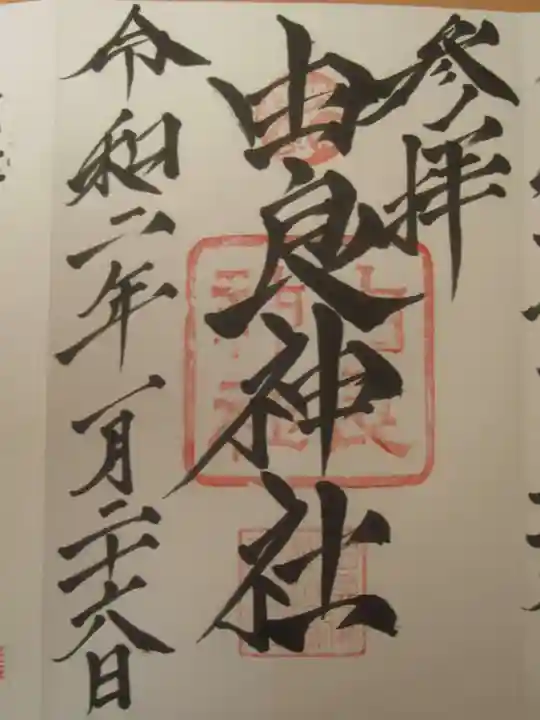 参拝
由良神社
令和二年一月二十六日
由良神社